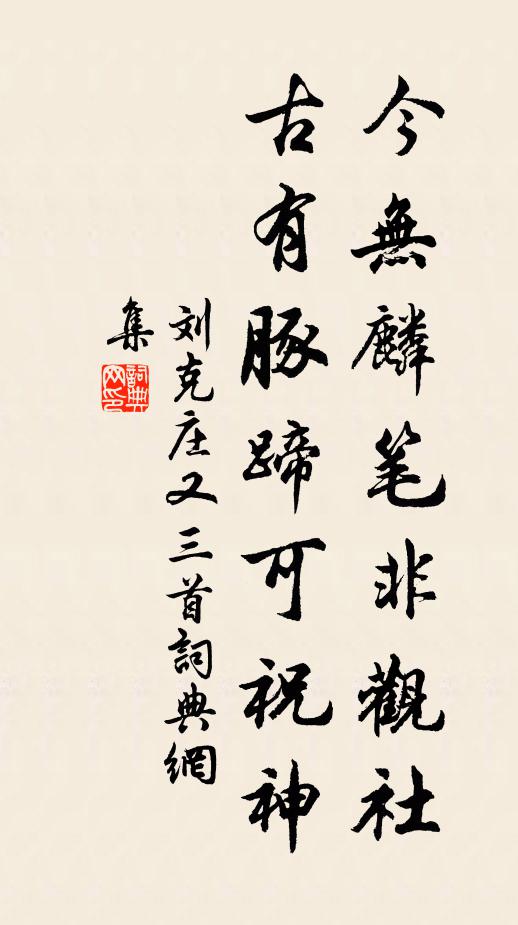 今無麟笔非觀社
古有豚蹄可祝神
刘克庄又三首詞典網
集
詞典网印